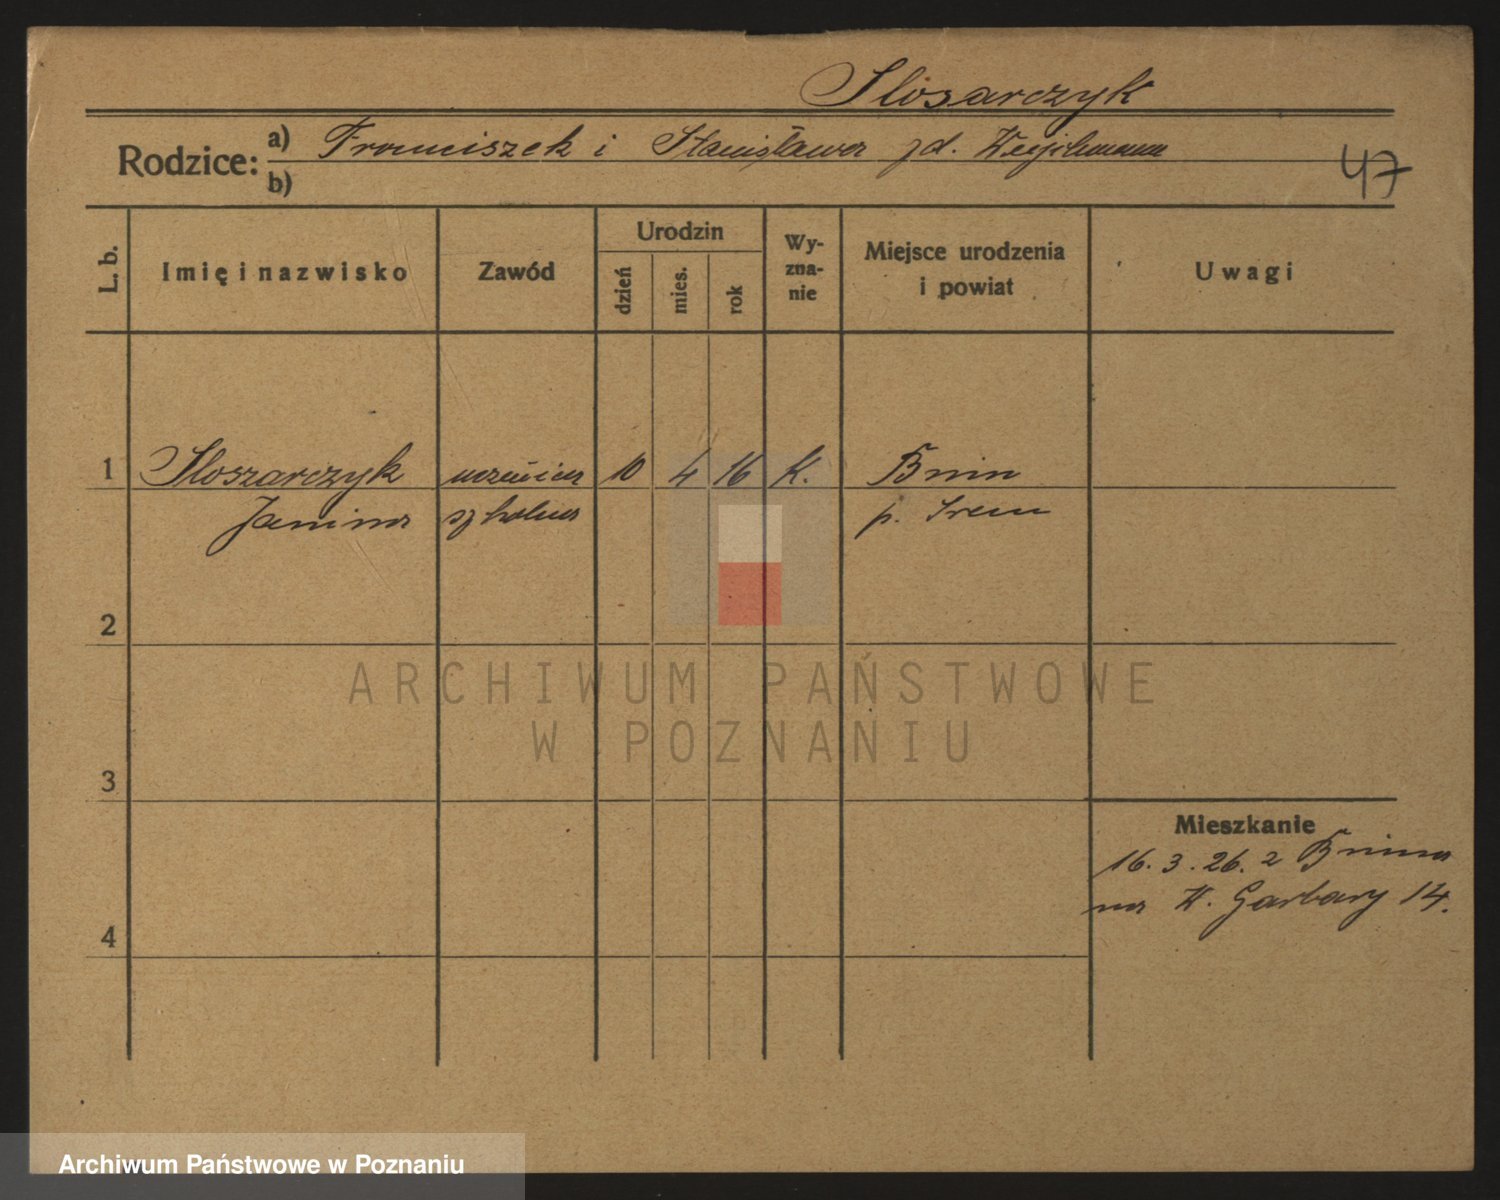 Slosarczyk
Rodzice: a) Franciszek i Stanisława zd. Wejchmann
b)
47
L. b.
Imię i nazwisko
Zawód
Urodzin
dzień
mies.
rok
Wy-
zna-
nie
Miejsce urodzenia
i powiat
Uwagi
1 Sloszarczyk uczenica 10 4 16 K. Bnin
Janina szkolna p. Śrem
2
3
4
Mieszkanie
16. 3. 26. z Bnina
na W. Garbary 14.
ARCHIWUM PAŃSTWOWE
W POZNANIU
Archiwum Państwowe w Poznaniu